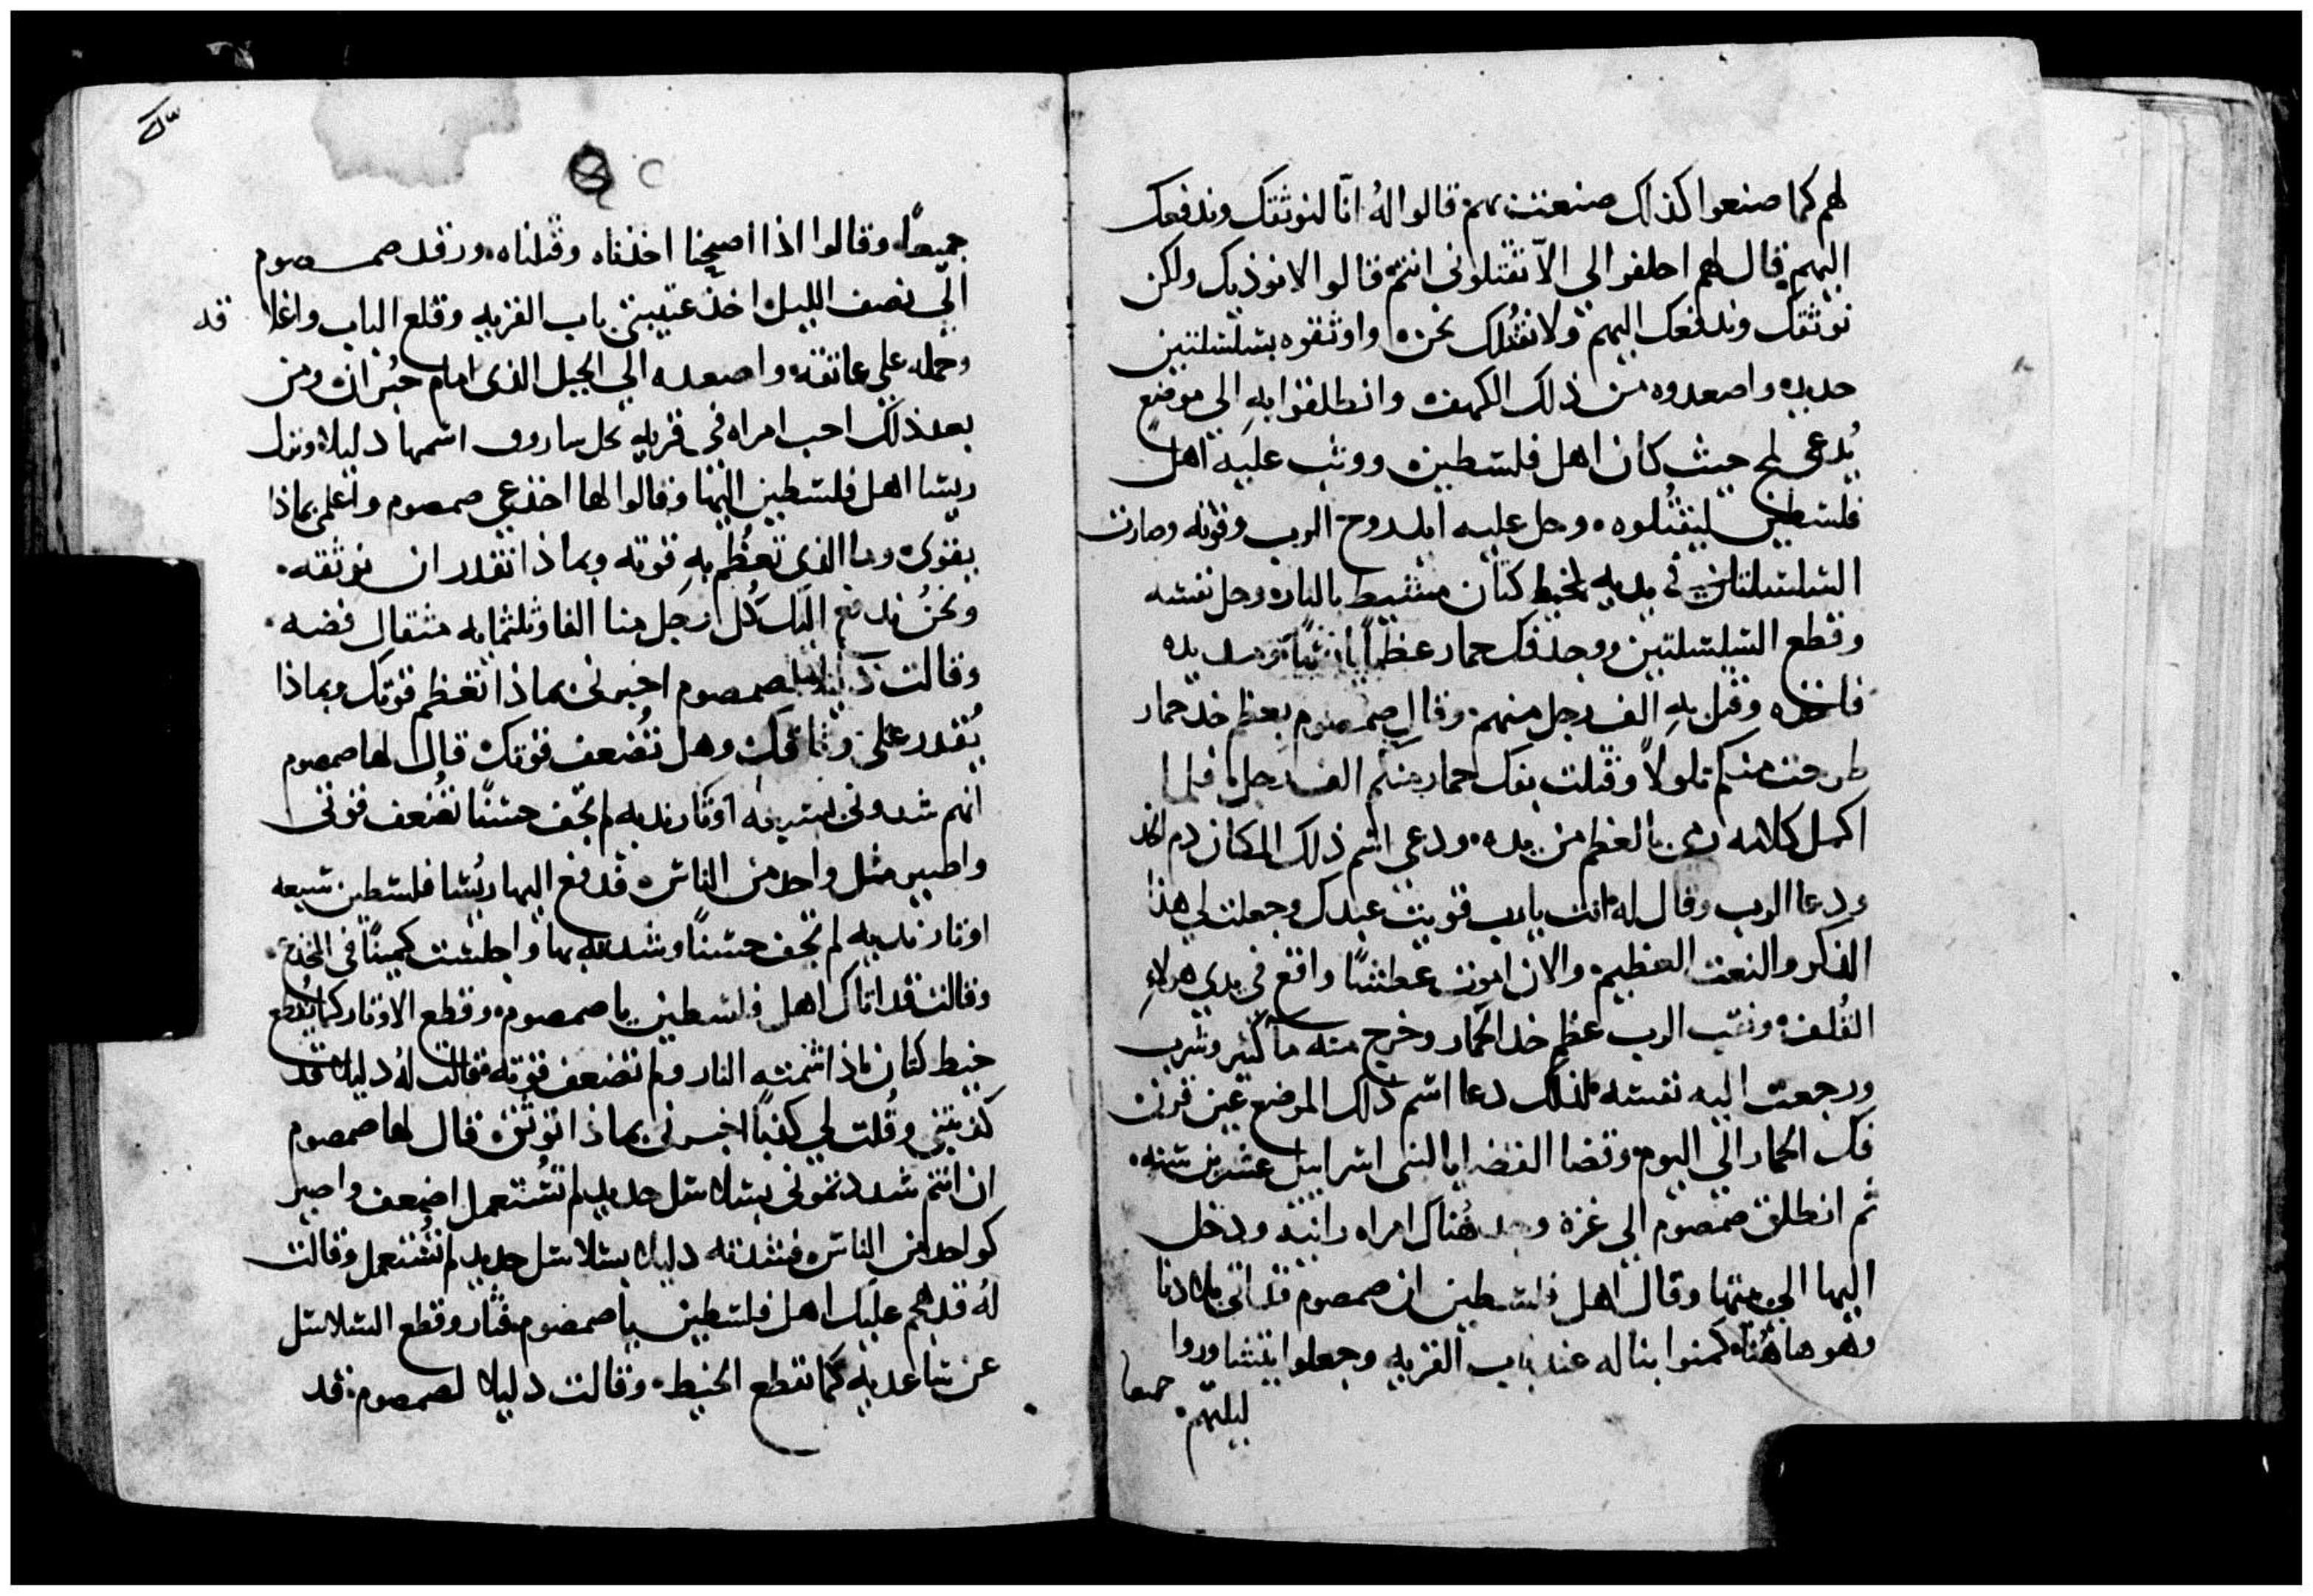 لهم كما صنعوا كذلك صنعت بهم قالوا لهُ انّا لنوثقك وندفعك
اليهم قال لهم احلفوا لي الاّ تقتلوني انتم قالوا لا نوذيك ولكن
نوثقك وندفعك اليهم ولا نقتُلك نحن واوثقوه بسلسلتين
حديد واصعدوه من ذلك الكهف وانطلقوا بهِ الي موضع
يُدعي لحي حيث كان اهل فلسطين ووثب عليه اهل
فلسطين ليقتُلوه وحل عليه ايد روح الرب وقوته وصارت
السلسلتان في يديه كخيط كتان منشيط بالنار وحل نفسه
وقطع السلسلتين ووجد فك حمار عظماً ومد يده
فاخذه وقتل بهِ الف رجل منهم وقال صمصوم بعظم خد حمار
طرحت منكم تلولاً وقتلت بفك حمار منكم الف رجل فلما
اكمل كلامه رمي بالعظم من يده ودعي اسم ذلك المكان دم الخد
ودعا الرب وقال له انت يا رب قويت عبدك وجعلت لي هذا
الفكر والنعت العظيم والان اموت عطشًا واقع في يدي هولاءِ
القُلف ونقب الرب عظم خد الحمار وخرج منه مآ كثير وشرب
ورجعت اليه نفسه لذلك دعا اسم ذلك الموضع عين قرن
فك الحمار الي اليوم وقضا القضايا لبني اسراييل عشرين سنه
ثم انطلق صمصوم الي غزة وجد هُناك امراه زانيه ودخل
اليها الي بيتها وقال اهل فلسطين ان صمصوم قد اتي بلادنا
وهو هاهُنا كمنوا بنا له عند باب القريه وجعلوا يتشاوروا
ليلتهم
جميعا
جميعاً وقالوا اذا اصبحنا اخذناه وقتلناه ورقد صمصوم
الي نصف الليل اخذ عتيبتي باب القريه وقلع الباب واغلا قه
وحمله علي عاتقه واصعده الي الجبل الذي امام حبران ومن
بعد ذلك احب امراه في قريه نحل ساروف اسمها دليلا ونزل
ريسا اهل فلسطين اليها وقالوا لها اخذعي صمصوم واعلمي بماذا
يقوي وما الذي تعظُم بهِ قوته وبماذا نقدر ان نوثقه
ونحنُ ندفع اليك كُل رجل منا الفا وثلثمايه مثقال فضه
وقالت دليلا لصمصوم اخبرني بماذا تعظم قوتك وبماذا
يُقدر علي وثاقك وهل تُضعف قوتك قال لها صمصوم
انهم شدوني بسبعه اوتار نديه لم تجف حسنًا تضُعف قوتي
واصير مثل واحد من الناس فدفع اليها ريُسا فلسطين سبعه
اوتار نديه لم تجف حسنًا وشدته بها واجلست كمينًا في المخدع
وقالت قد اتاك اهل فلسطين يا صمصوم وقطع الاوتار كما يُقطع
خيط كتان اذا اشمته النار ولم تضعف قوته فقالت لهُ دليلا قد
كذبتني وقُلت لي كذبًا اخبرني بماذا توثق قال لها صمصوم
ان انتم شددتموني بسلاسل حديد لم تسُتعمل اضعف واصير
كواحد من الناس فشدته دليلا بسلاسل حديد لم تسُتعمل وقالت
لهُ قد هجم عليك اهل فلسطين يا صمصوم فثار وقطع السلاسل
عن ساعديه كما تقطع الخيط وقالت دليلا لصمصوم قد